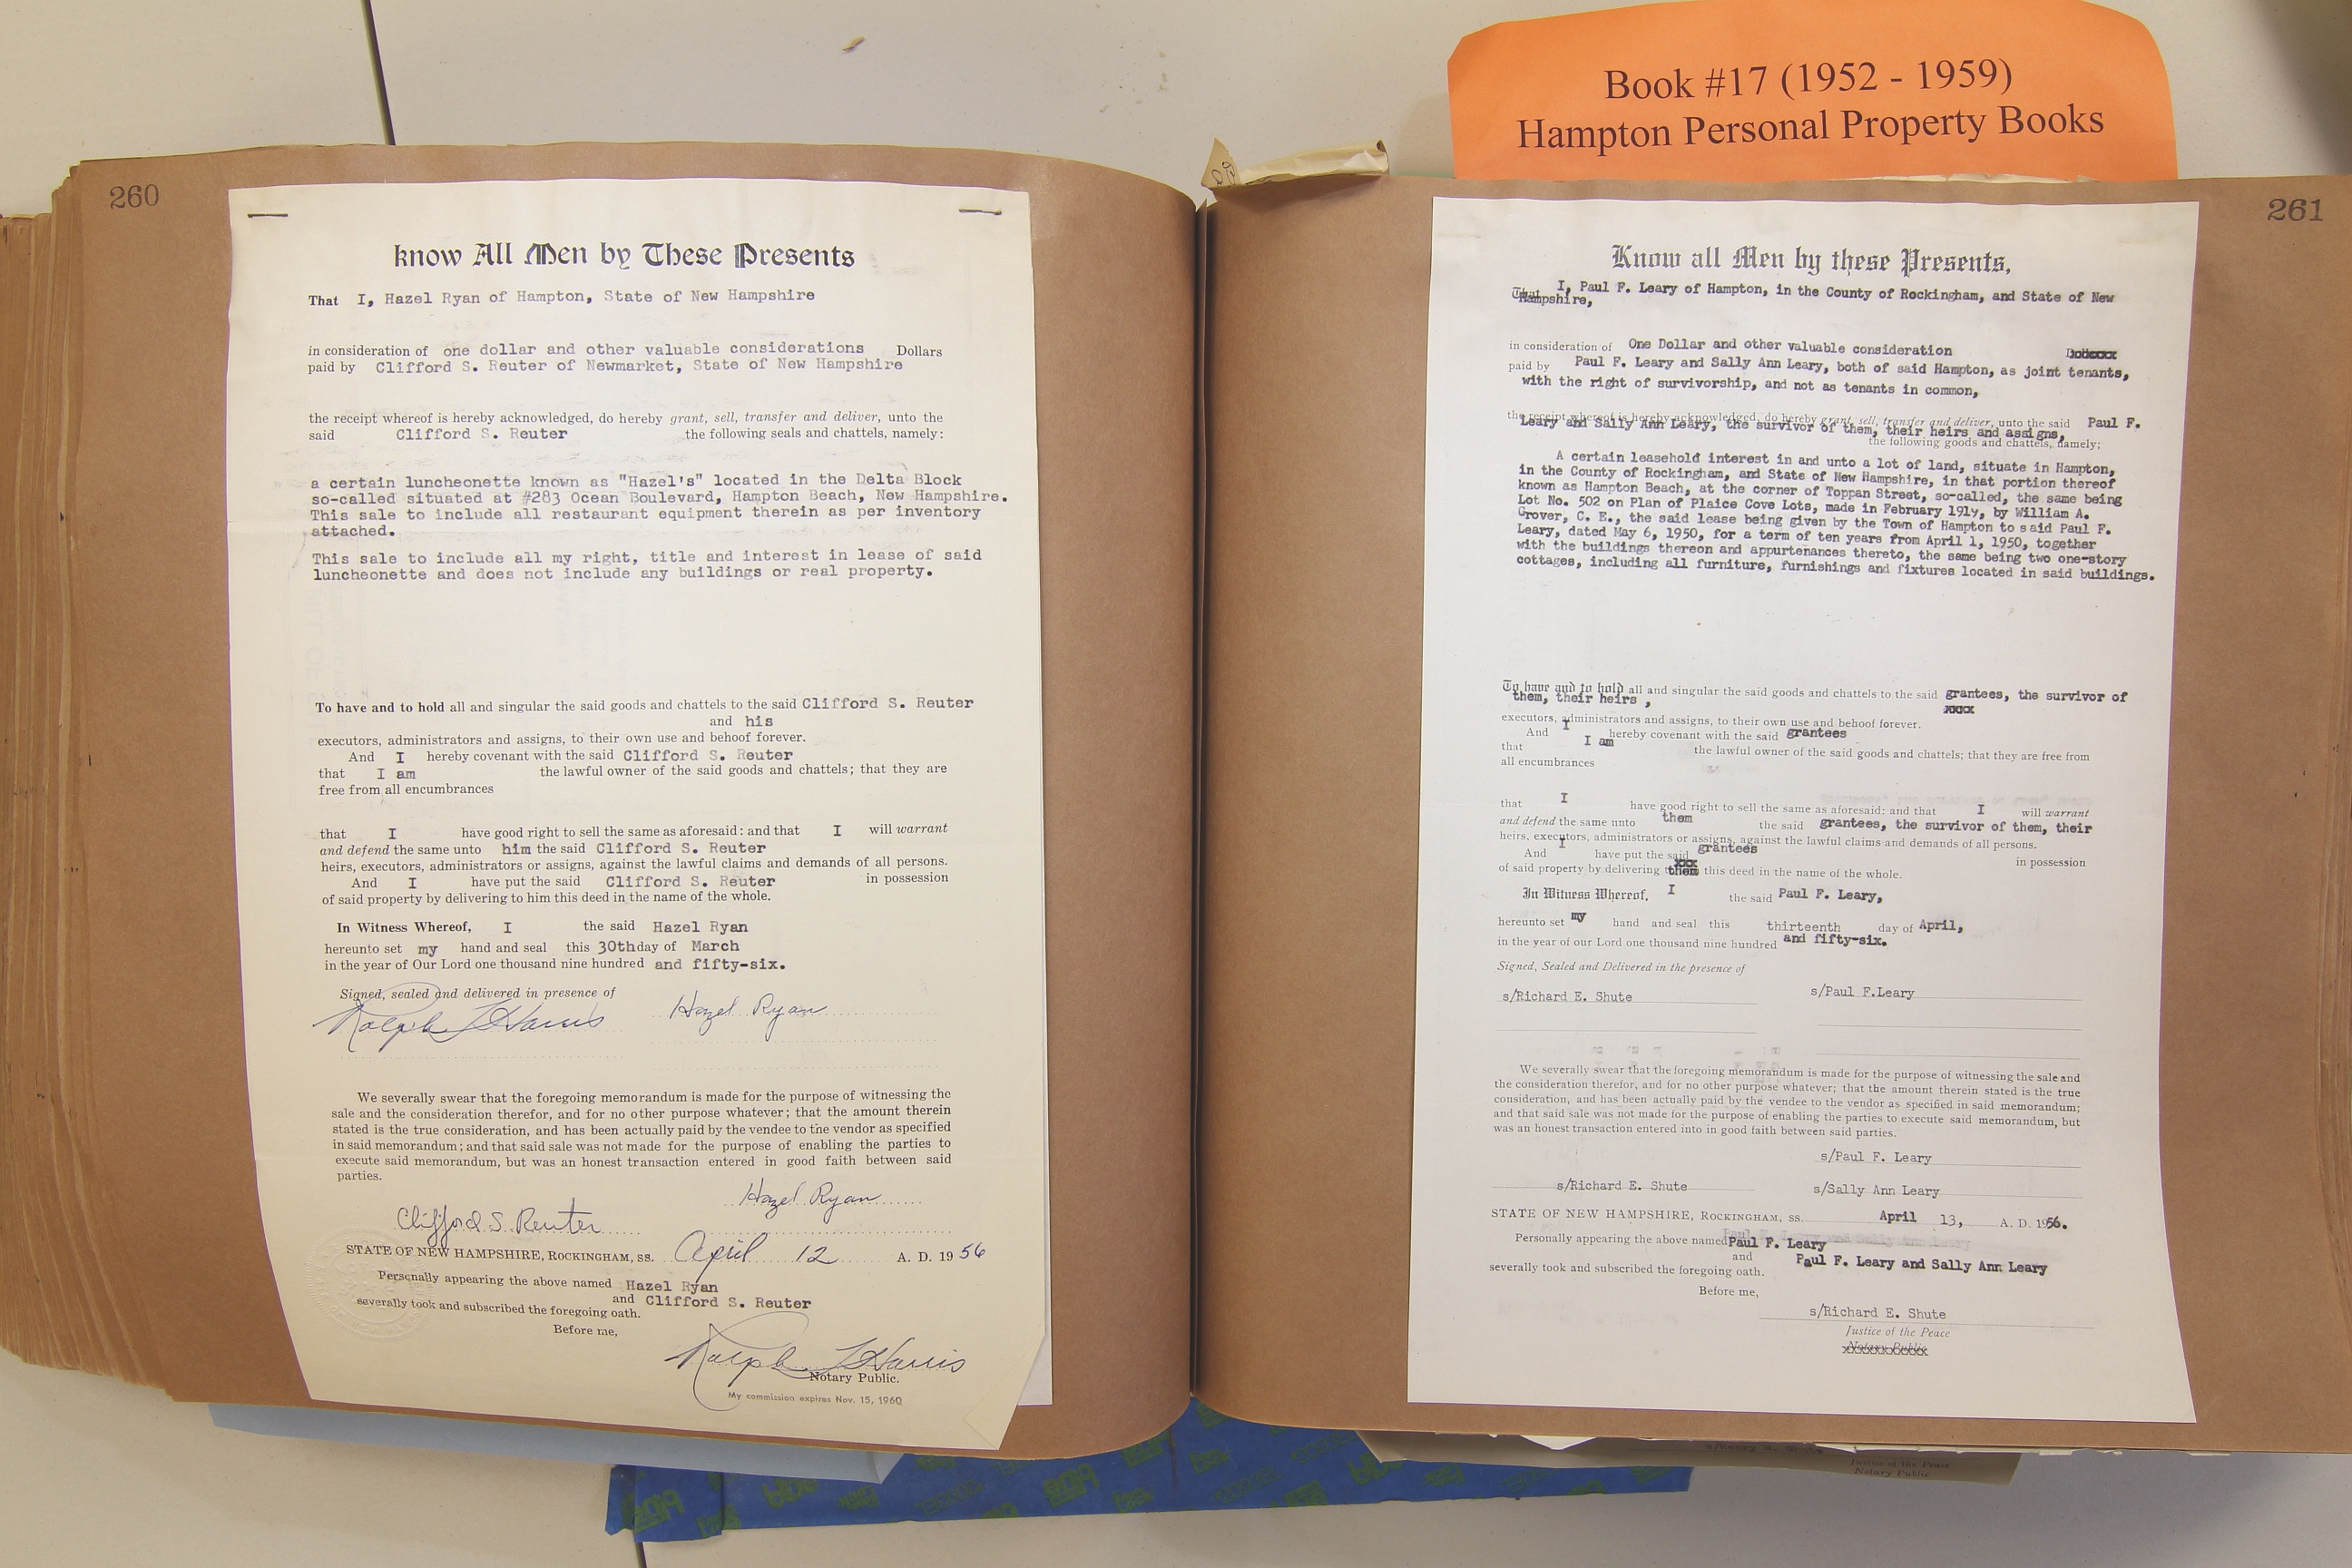 Book #17 (1952 - 1959)
Hampton Personal Property Books
260
know All Men by These Presents
That I, Hazel Ryan of Hampton, State of New Hampshire
in consideration of one dollar and other valuable considerations Dollars
paid by Clifford S. Reuter of Newmarket, State of New Hampshire
the receipt whereof is hereby acknowledged, do hereby grant, sell, transfer and deliver, unto the
said Clifford S. Reuter the following seals and chattels, namely:
a certain luncheonette known as "Hazel's" located in the Delta Block
so-called situated at #283 Ocean Boulevard, Hampton Beach, New Hampshire.
This sale to include all restaurant equipment therein as per inventory
attached.
This sale to include all my right, title and interest in lease of said
luncheonette and does not include any buildings or real property.
To have and to hold all and singular the said goods and chattels to the said Clifford S. Reuter
and his
executors, administrators and assigns, to their own use and behoof forever.
And I hereby covenant with the said Clifford S. Reuter
that I am the lawful owner of the said goods and chattels; that they are
free from all encumbrances
that I have good right to sell the same as aforesaid: and that I will warrant
and defend the same unto him the said Clifford S. Reuter
heirs, executors, administrators or assigns, against the lawful claims and demands of all persons.
And I have put the said Clifford S. Reuter in possession
of said property by delivering to him this deed in the name of the whole.
In Witness Whereof, I the said Hazel Ryan
hereunto set my hand and seal this 30th day of March
in the year of Our Lord one thousand nine hundred and fifty-six.
Signed, sealed and delivered in presence of
Ralph L Harris Hazel Ryan
We severally swear that the foregoing memorandum is made for the purpose of witnessing the
sale and the consideration therefor, and for no other purpose whatever; that the amount therein
stated is the true consideration, and has been actually paid by the vendee to the vendor as specified
in said memorandum; and that said sale was not made for the purpose of enabling the parties to
execute said memorandum, but was an honest transaction entered in good faith between said
parties.
Hazel Ryan
Clifford S. Reuter
STATE OF NEW HAMPSHIRE, ROCKINGHAM, SS. April 12 A. D. 1956
Personally appearing the above named Hazel Ryan
and Clifford S. Reuter
severally took and subscribed the foregoing oath.
Before me,
Ralph L Harris
Notary Public.
My commission expires Nov. 15, 1960
261
Know all Men by these Presents,
That I, Paul F. Leary of Hampton, in the County of Rockingham, and State of New
Hampshire,
in consideration of One Dollar and other valuable consideration
paid by Paul F. Leary and Sally Ann Leary, both of said Hampton, as joint tenants,
with the right of survivorship, and not as tenants in common,
the receipt whereof is hereby acknowledged, do hereby grant, sell, transfer and deliver, unto the said Paul F.
Leary and Sally Ann Leary, the survivor of them, their heirs and assigns,
the following goods and chattels, namely;
A certain leasehold interest in and unto a lot of land, situate in Hampton,
in the County of Rockingham, and State of New Hampshire, in that portion thereof
known as Hampton Beach, at the corner of Toppan Street, so-called, the same being
Lot No. 502 on Plan of Plaice Cove Lots, made in February 1919, by William A.
Grover, C. E., the said lease being given by the Town of Hampton to said Paul F.
Leary, dated May 6, 1950, for a term of ten years from April 1, 1950, together
with the buildings thereon and appurtenances thereto, the same being two one-story
cottages, including all furniture, furnishings and fixtures located in said buildings.
To have and to hold all and singular the said goods and chattels to the said grantees, the survivor of
them, their heirs,
xxxx
executors, administrators and assigns, to their own use and behoof forever.
And I hereby covenant with the said grantees
that I am the lawful owner of the said goods and chattels; that they are free from
all encumbrances
that I have good right to sell the same as aforesaid: and that I will warrant
and defend the same unto them the said grantees, the survivor of them, their
heirs, executors, administrators or assigns, against the lawful claims and demands of all persons.
And I have put the said grantees in possession
of said property by delivering them this deed in the name of the whole.
In Witness Whereof, I the said Paul F. Leary,
hereunto set my hand and seal this thirteenth day of April,
in the year of our Lord one thousand nine hundred and fifty-six.
Signed, Sealed and Delivered in the presence of
s/Richard E. Shute s/Paul F.Leary
We severally swear that the foregoing memorandum is made for the purpose of witnessing the sale and
the consideration therefor, and for no other purpose whatever; that the amount therein stated is the true
consideration, and has been actually paid by the vendee to the vendor as specified in said memorandum;
and that said sale was not made for the purpose of enabling the parties to execute said memorandum, but
was an honest transaction entered into in good faith between said parties.
s/Paul F. Leary
s/Richard E. Shute s/Sally Ann Leary
STATE OF NEW HAMPSHIRE, ROCKINGHAM, SS. April 13, A. D. 1956.
Personally appearing the above named Paul F. Leary
and Paul F. Leary and Sally Ann Leary
severally took and subscribed the foregoing oath.
Before me,
s/Richard E. Shute
Justice of the Peace
Notary Public
Justice of the Peace
Notary Public